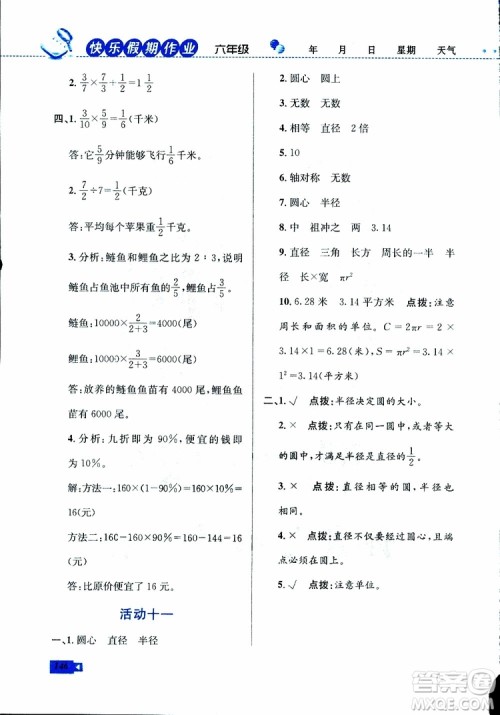 快乐假期作业 六年级 年 月 日 星期 天气
2. 2/7×7/3+1/3=1
四、1. 3/10×5/9=1/6(千米)
答:它5/9分钟能够飞行1/6千米。
2. 7/2÷7=1/2(千克)
答:平均每个苹果重1/2千克。
3. 分析:鲢鱼和鲤鱼之比为2∶3,
鲢鱼占鱼池中所放鱼苗的2/5,
鲤鱼占3/5。
鲢鱼:10000×2/2+3=4000(尾)
鲤鱼:10000×3/2+3=6000(尾)
答:放养的鲢鱼鱼苗有4000尾,鲤鱼
鱼苗有6000尾。
4. 分析:九折即为90%,便宜的钱即
为10%。
解:方法一:160×(1-90%)=
16(元)
方法二:160-160×90%=16
(元)
答:比原价便宜了16元。
活动十一
一、1. 圆心 直径 半径
2. 圆心 圆上
3. 无数 无数
4. 相等 直径 2倍
5. 10
6. 轴对称 无数
7. 圆心 半径
8. 中 祖冲之 两 3.14
9. 直径 三角 长方 周长的一半 半
径 长×宽 πr²
10. 6.28米 3.14平方米 点拨:注意
周长和面积的单位。C=2πr=2×
3.14×1=6.28(米),S=πr²=
3.14×1²=3.14(平方米)
二、1. √ 点拨:半径决定圆的大小。
2. × 点拨:只有在同圆或等圆中,
才满足半径是直径的1/2。
3. √
4. × 点拨:直径要经过圆心,且端
点必须在圆上。
5. √ 点拨:注意单位。
答案圈
MXQE.COM